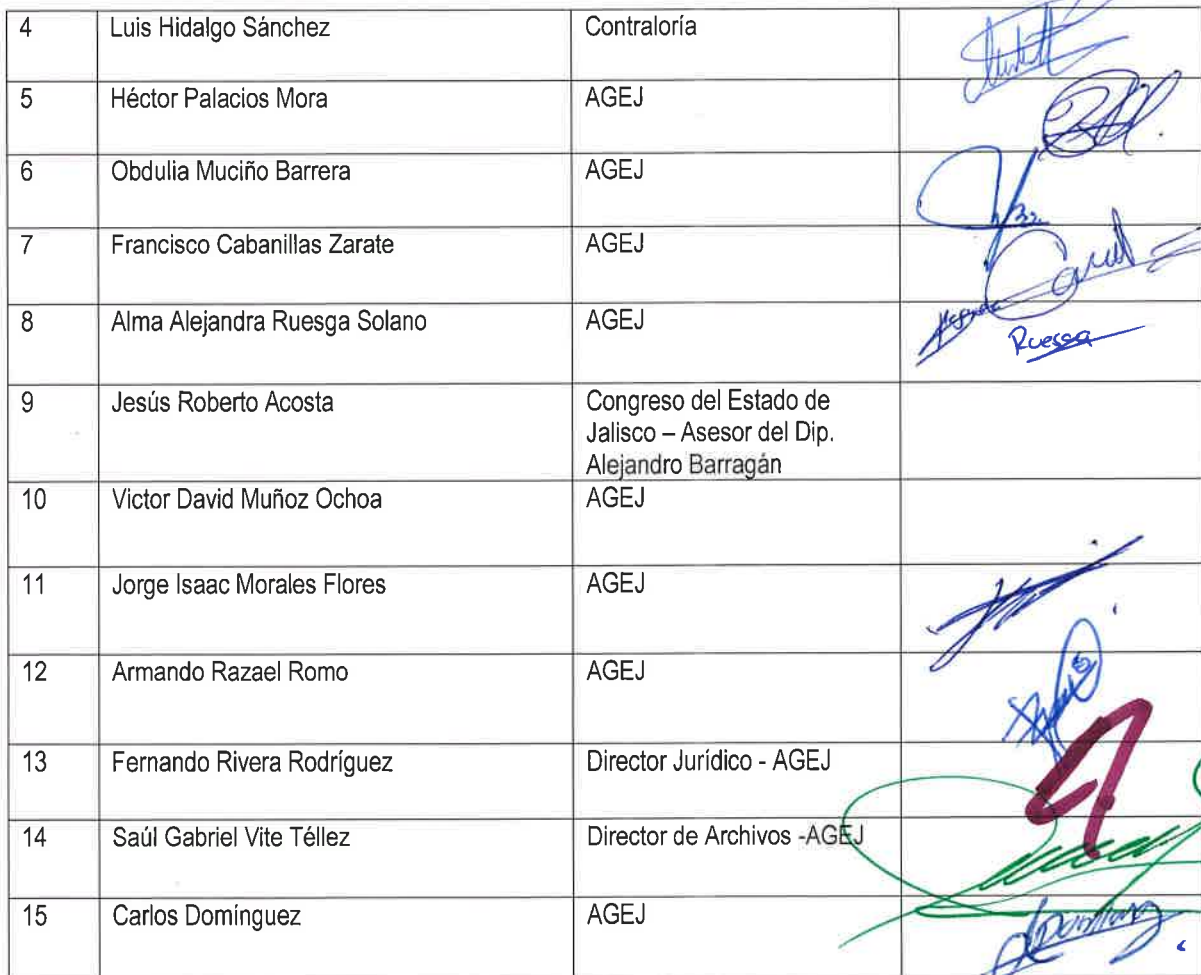 4 Luis Hidalgo Sánchez Contraloría
5 Héctor Palacios Mora AGEJ
6 Obdulia Muciño Barrera AGEJ
7 Francisco Cabanillas Zarate AGEJ
8 Alma Alejandra Ruesga Solano AGEJ
Ruesga
9 Jesús Roberto Acosta Congreso del Estado de
Jalisco – Asesor del Dip.
Alejandro Barragán
10 Victor David Muñoz Ochoa AGEJ
11 Jorge Isaac Morales Flores AGEJ
12 Armando Razael Romo AGEJ
13 Fernando Rivera Rodríguez Director Jurídico - AGEJ
14 Saúl Gabriel Vite Téllez Director de Archivos -AGEJ
15 Carlos Domínguez AGEJ